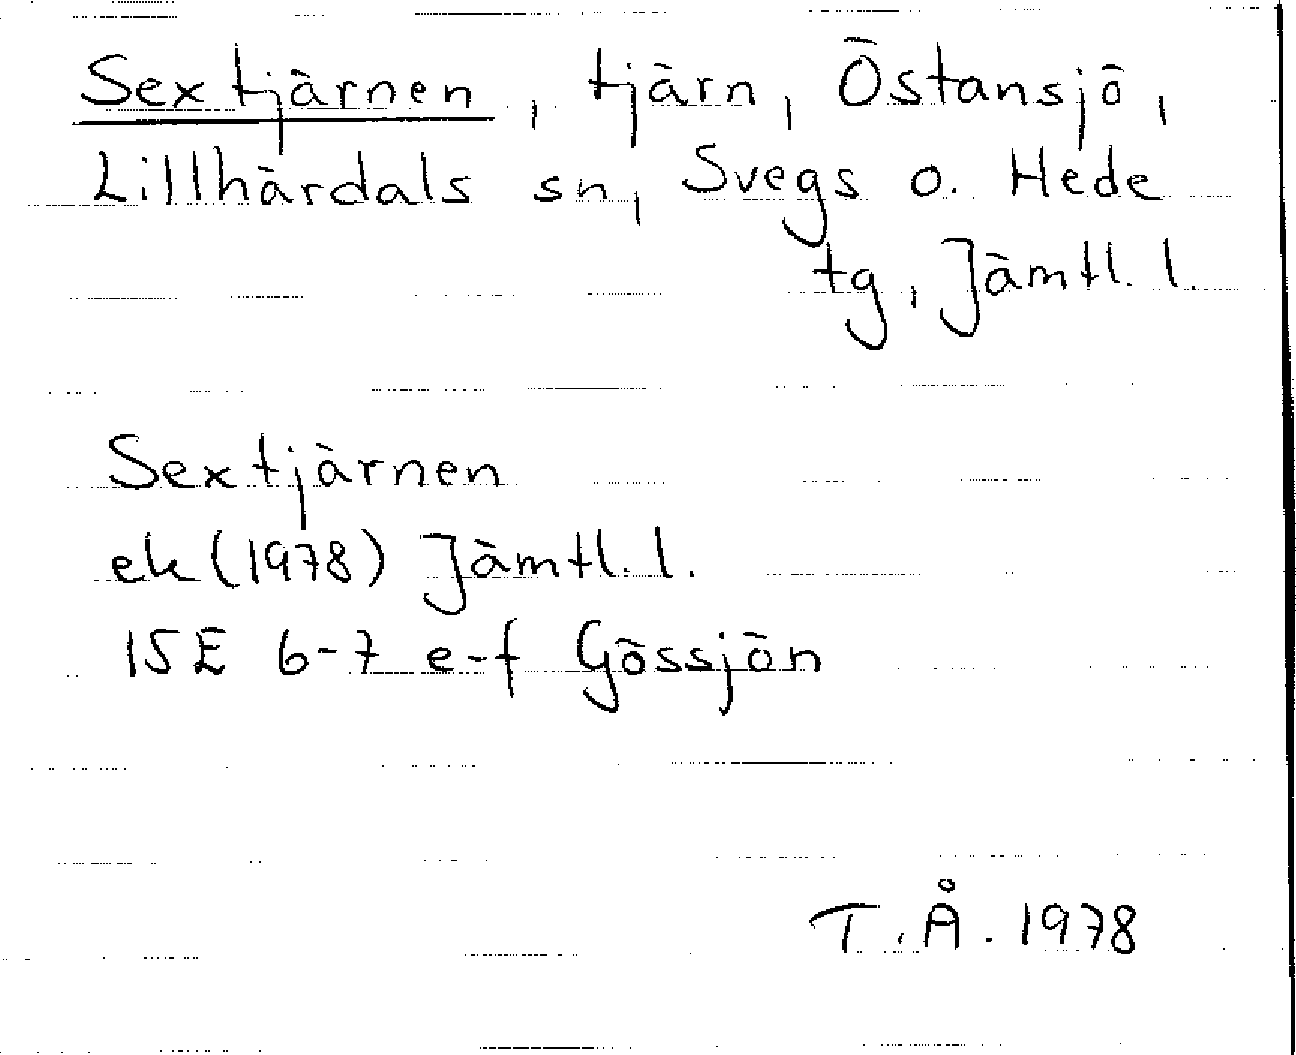 Sextjärnen, tjärn, Östansjö,
Lillhärdals sn, Svegs o. Hede
tg, Jämtl. l.
Sextjärnen
ek (1978) Jämtl. l.
15E 6-7 e-f Gössjön
T.Å. 1978